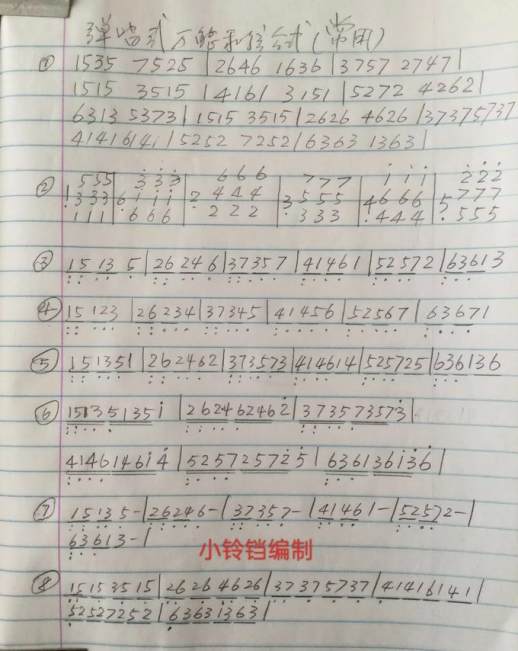 弹唱式万能和弦公式(常用)
① 1535 7525 | 2646 1636 | 3757 2747 |
1515 3515 | 4161 3151 | 5272 4262 |
6313 5373 | 1515 3515 | 2626 4626 | 37375737
41416141 | 5252 7252 | 6363 1363 |
555 | 3̇3̇3̇ | 666 | 777 | i i i | 2̇2̇2̇
② 1 333 | 6 i i i | 2 444 | 3 555 | 4 666 | 5 777
111 | 666 | 222 | 333 | 444 | 555
③ 15 13 5 | 26 246 | 37357 | 41461 | 52572 | 63613
④ 15 123 | 26234 | 37345 | 41456 | 52567 | 63671
⑤ 151351 | 262462 | 373573 | 414614 | 525725 | 636136
⑥ 15135135i | 262462462̇ | 373573573̇ |
4146146i4̇ | 52572572̇5̇ | 63613613̇6̇ |
⑦ 15135- | 26246- | 37357- | 41461- | 52572- |
63613- |
小铃铛编制
⑧ 15153515 | 26264626 | 37375737 | 41416141 |
52527252 | 63631363 |